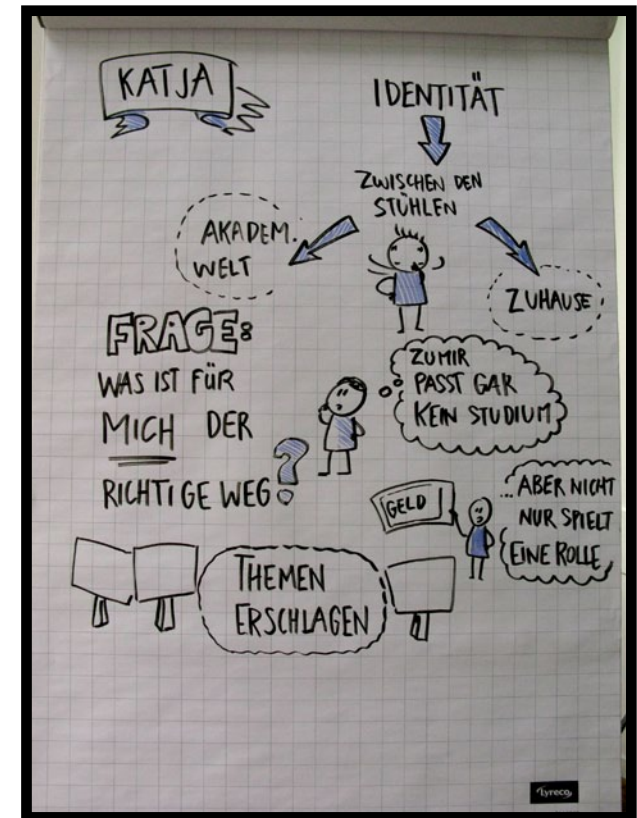 KATJA
IDENTITÄT
ZWISCHEN DEN
STÜHLEN
AKADEM.
WELT
ZUHAUSE
FRAGE:
WAS IST FÜR
MICH DER
RICHTIGE WEG?
ZU MIR
PASST GAR
KEIN STUDIUM
GELD
... ABER NICHT
NUR SPIELT
EINE ROLLE
THEMEN
ERSCHLAGEN
Lyreco